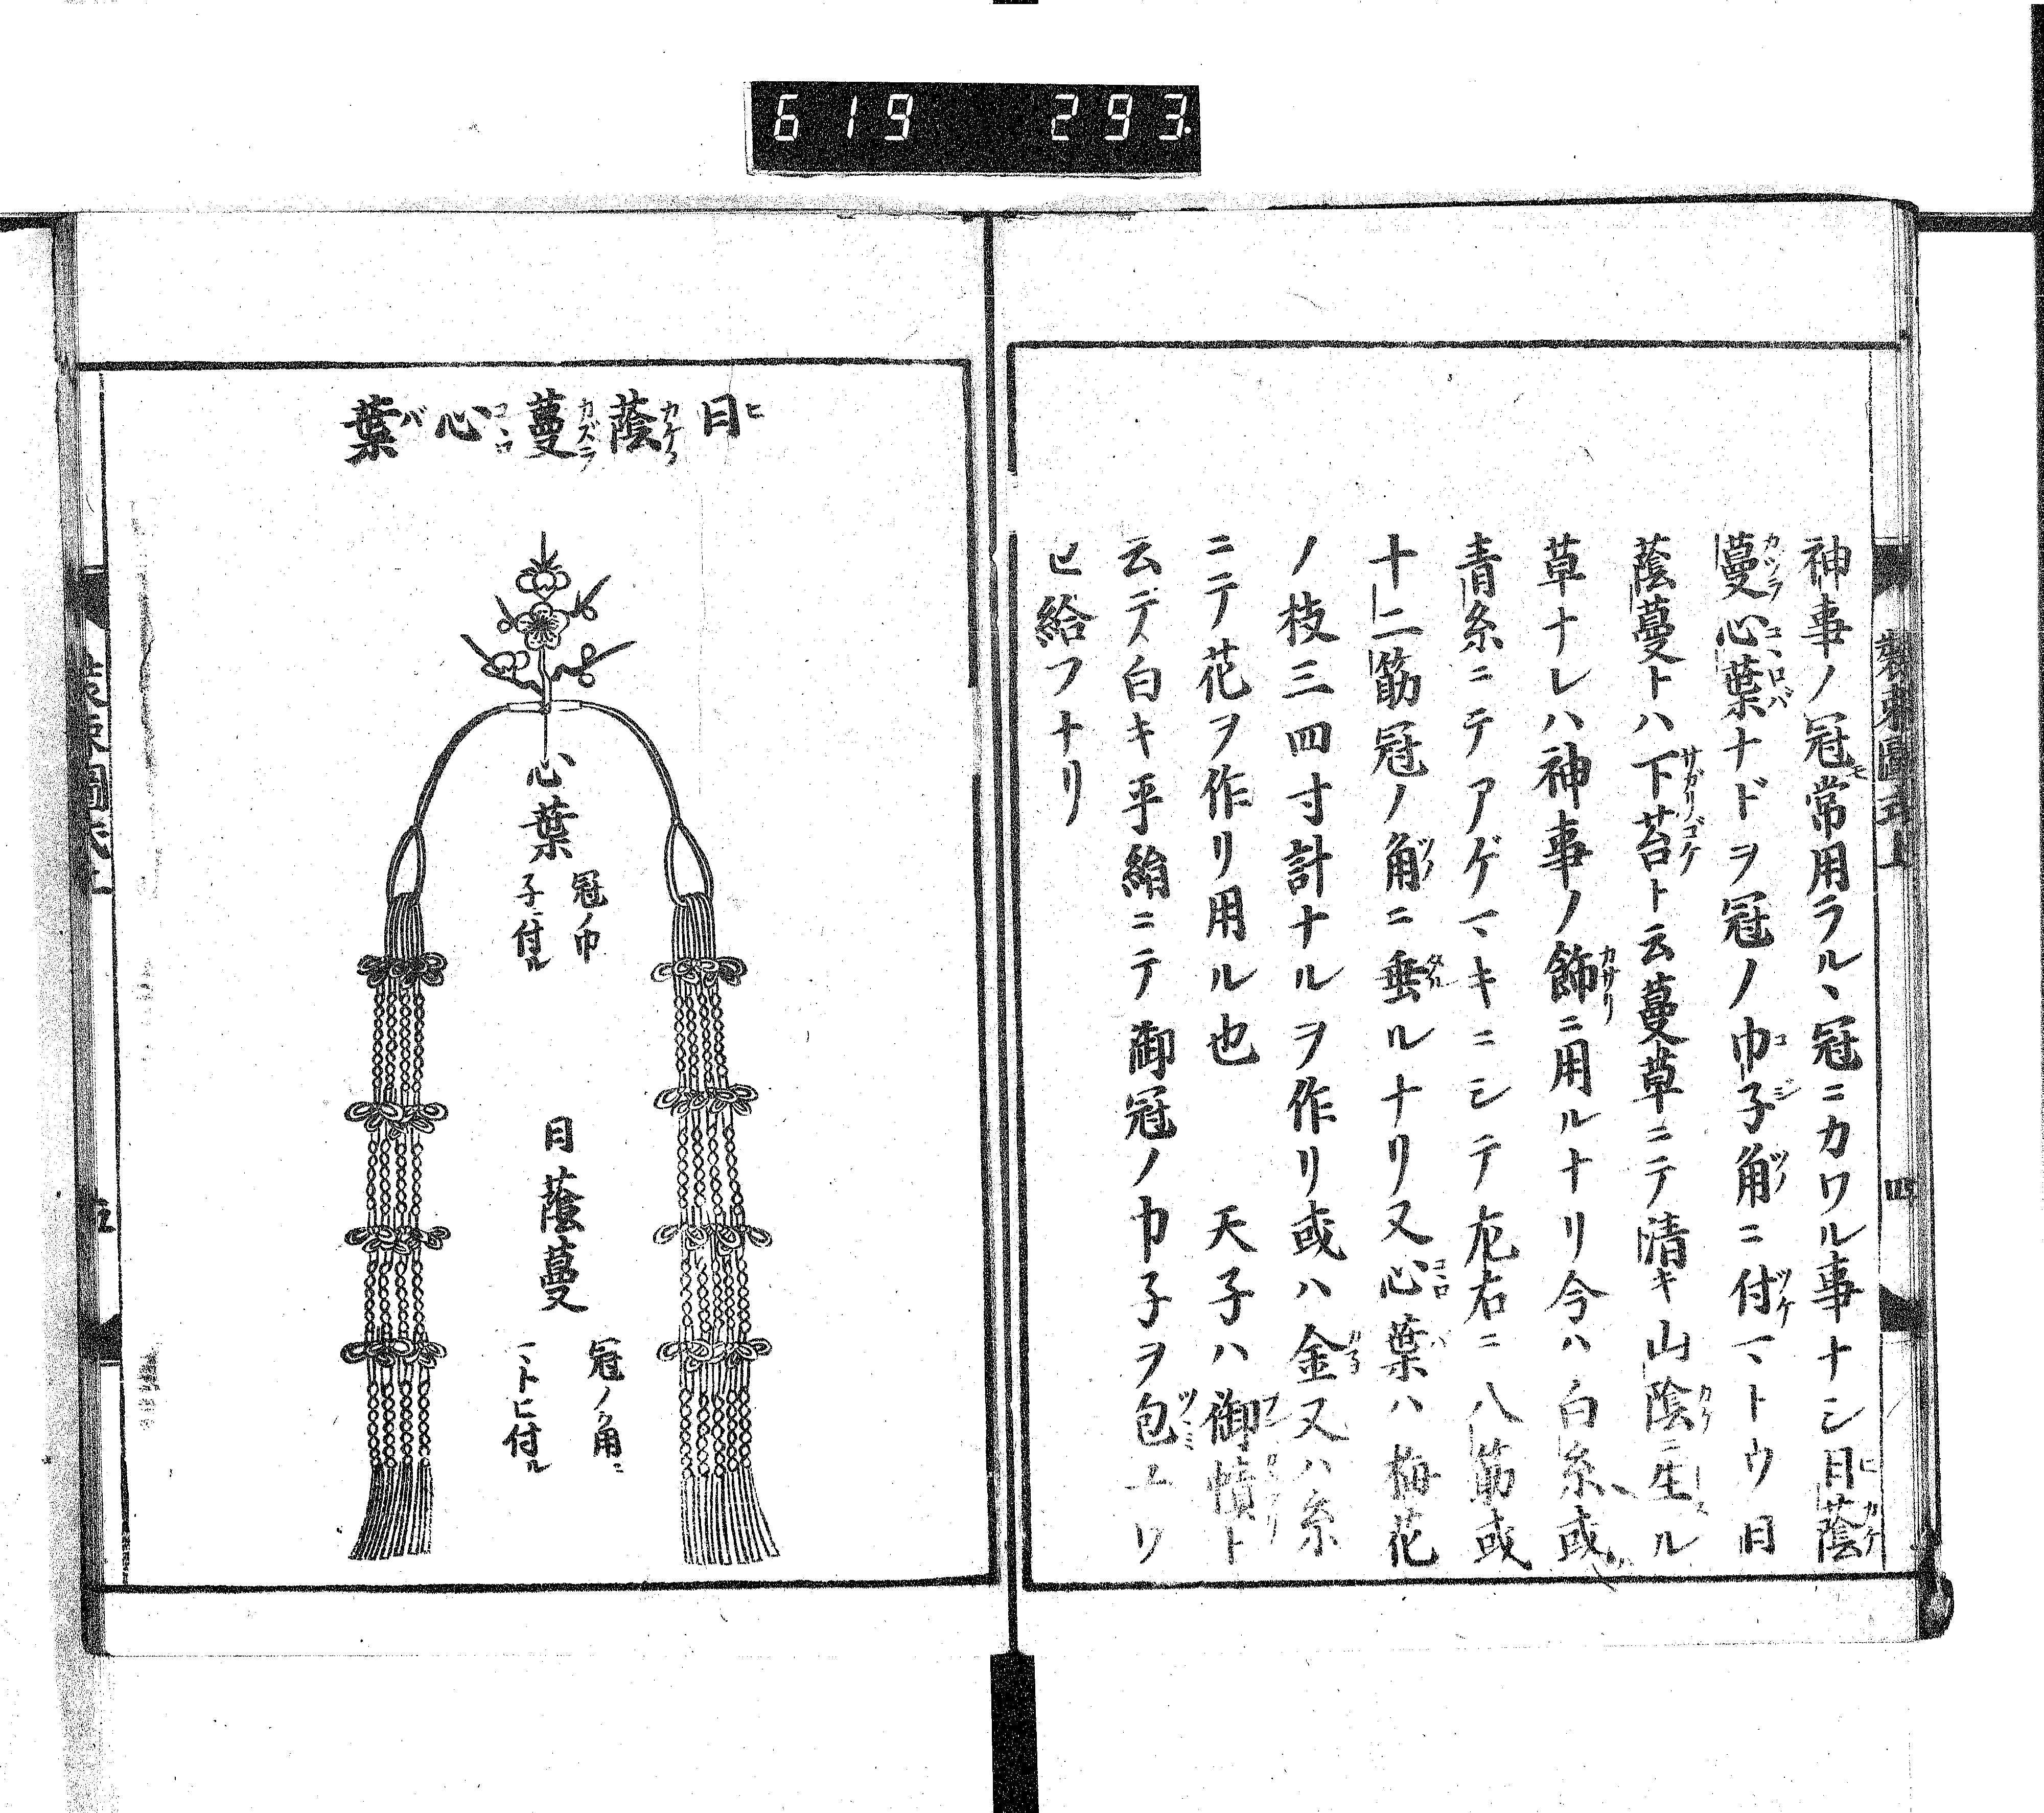 619 293
神事ノ冠モ常用ラルヽ冠ニカワル事ナシ日蔭
蔓心葉ナドヲ冠ノ巾子角ニ付マトウ日
蔭蔓トハ下苔ト云蔓草ニテ清キ山陰ニ生ル
草ナレハ神事ノ飾ニ用ルナリ今ハ白糸或
青糸ニテアゲマキニシテ左右ニ八筋或
十二筋冠ノ角ニ垂ルナリ又心葉ハ梅花
ノ枝三四寸計ナルヲ作リ或ハ金又ハ糸
ニテ花ヲ作リ用ル也 天子ハ御幘ト
云テ白キ平絹ニテ御冠ノ巾子ヲ包ユワ
ヒ給フナリ
四
日蔭蔓心葉
心葉
冠ノ巾
子ニ付ル
日蔭蔓
冠ノ角ニ
マトヒ付ル